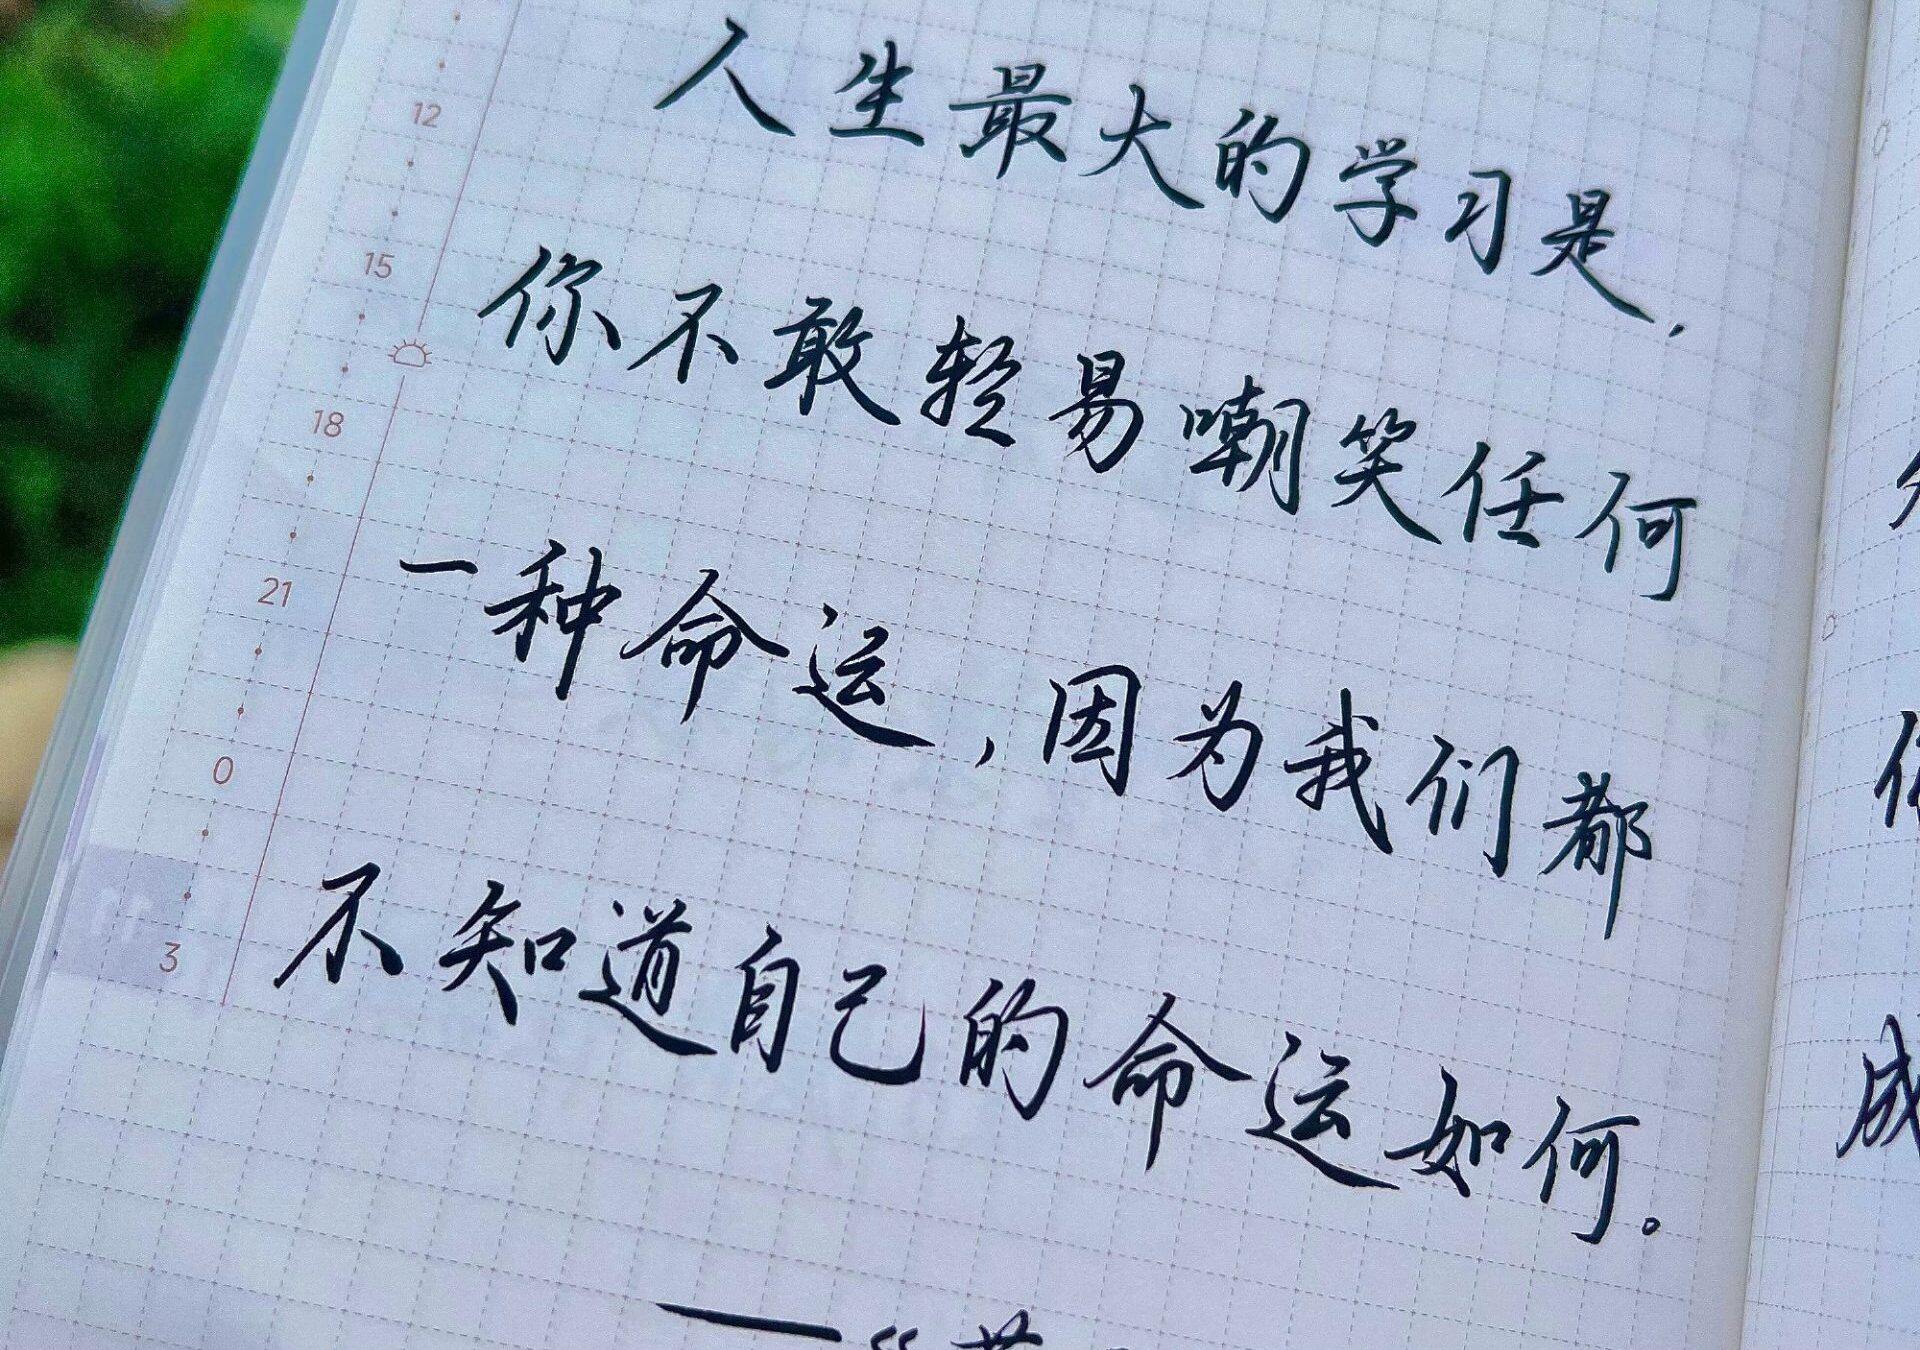 人生最大的学习是,
你不敢轻易嘲笑任何
一种命运,因为我们都
不知道自己的命运如何。
12
15
18
21
0
3
11
成